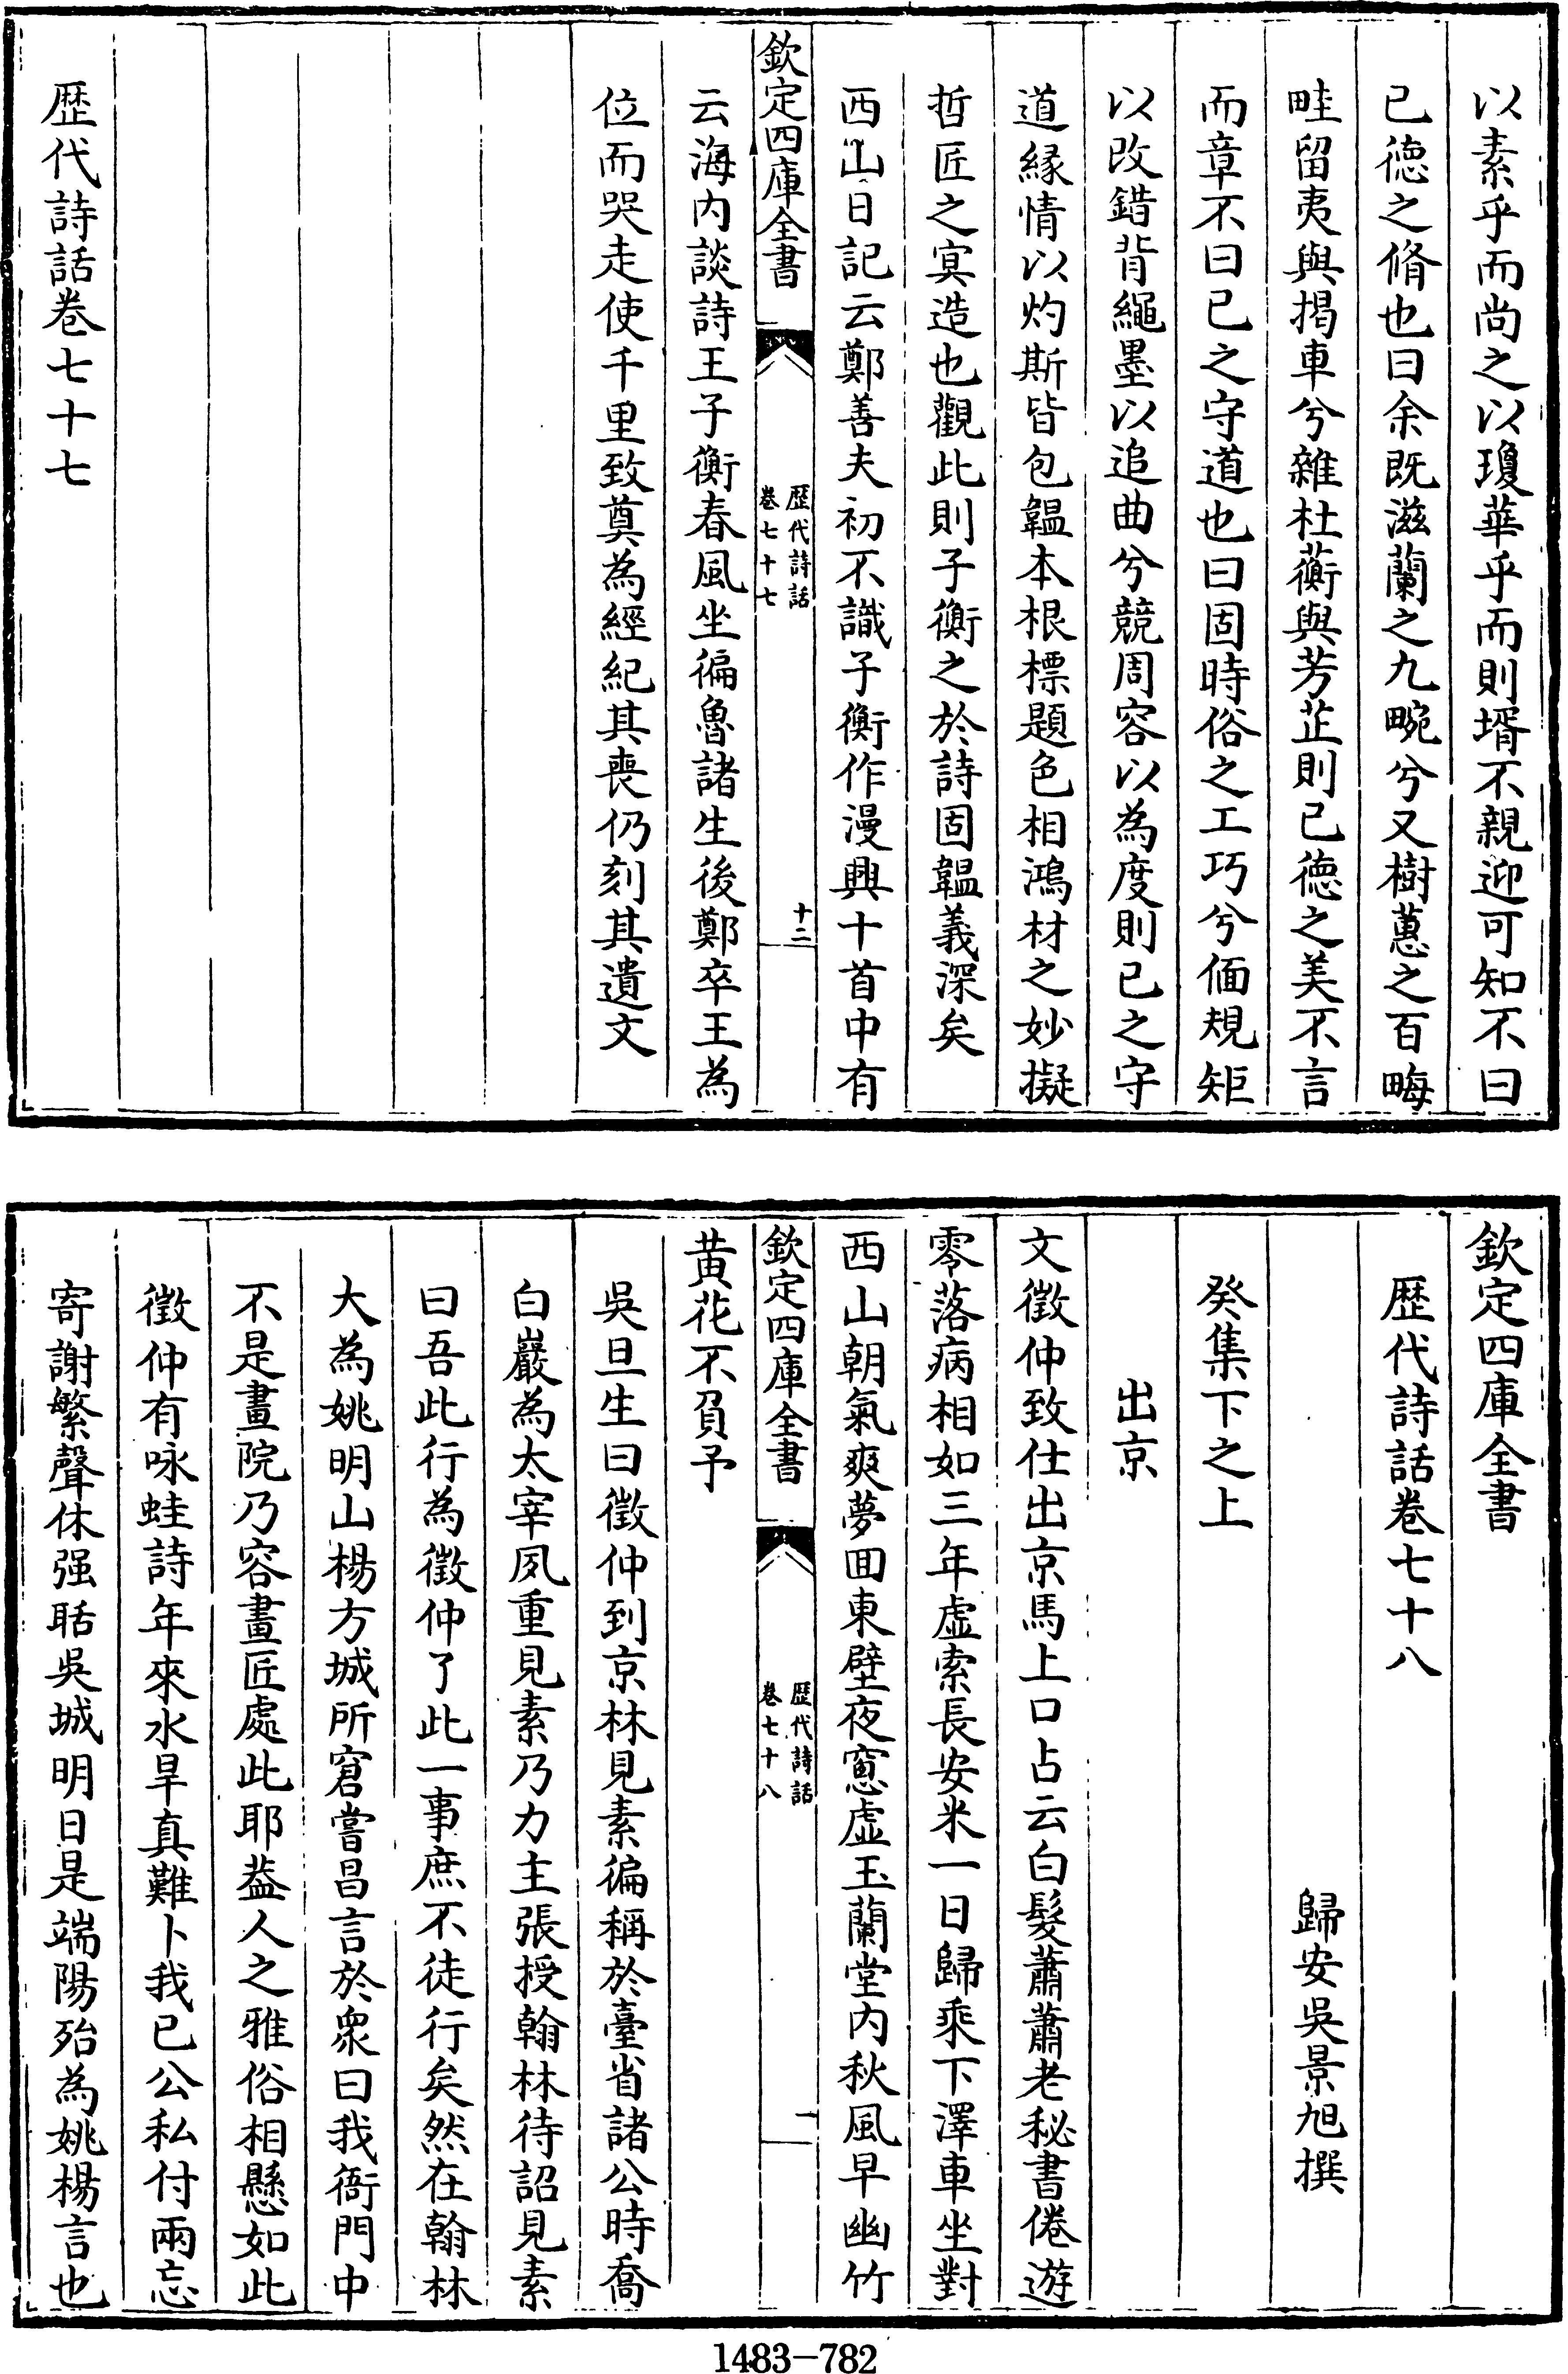 以素乎而尚之以瓊華乎而則壻不親迎可知不曰
已徳之脩也曰余既滋蘭之九畹兮又樹蕙之百畮
畦留夷與揭車兮雜杜蘅與芳芷則已徳之美不言
而章不曰已之守道也曰固時俗之工巧兮偭規矩
以改錯背繩墨以追曲兮競周容以為度則已之守
道緣情以灼斯皆包韞本根標題色相鴻材之妙擬
哲匠之寞造也觀此則子衡之於詩固韞義深矣
西山日記云鄭善夫初不識子衡作漫興十首中有
欽定四庫全書
歴代詩話
卷七十七
十二
云海内談詩王子衡春風坐徧魯諸生後鄭卒王為
位而哭走使千里致奠為經紀其喪仍刻其遺文
歴代詩話卷七十七
欽定四庫全書
歴代詩話卷七十八
歸安吳景旭撰
癸集下之上
出京
文徴仲致仕出京馬上口占云白髮蕭蕭老秘書倦遊
零落病相如三年虛索長安米一日歸乘下澤車坐對
西山朝氣爽夢囬東壁夜窻虛玉蘭堂内秋風早幽竹
欽定四庫全書
歴代詩話
卷七十八
一
黄花不負予
吳旦生曰徴仲到京林見素徧稱於臺省諸公時喬
白巖為太宰夙重見素乃力主張授翰林待詔見素
曰吾此行為徴仲了此一事庶不徒行矣然在翰林
大為姚明山楊方城所窘嘗昌言於衆曰我衙門中
不是畫院乃容畫匠處此耶葢人之雅俗相懸如此
徴仲有咏蛙詩年來水旱真難卜我已公私付兩忘
寄謝繁聲休强聒吳城明日是端陽殆為姚楊言也
1483-782